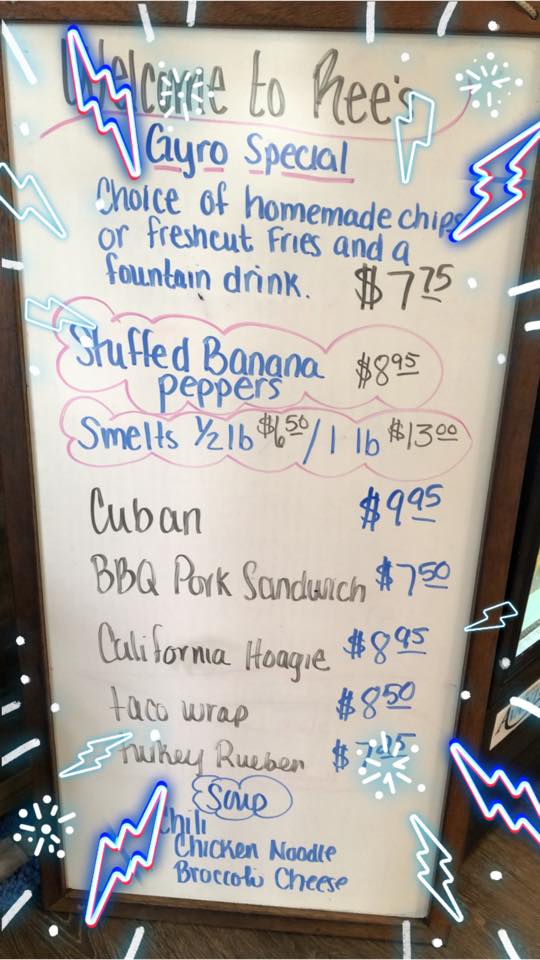 Welcome to Ree's
Gyro Special
Choice of homemade chips
or freshcut Fries and a
fountain drink. $7.75
Stuffed Banana $8.95
peppers
Smelts ½ lb $6.50 / 1 lb $13.00
Cuban $9.95
BBQ Pork Sandwich $7.50
California Hoagie $8.95
taco wrap $8.50
turkey Rueben $
Soup
Chili
Chicken Noodle
Broccoli Cheese